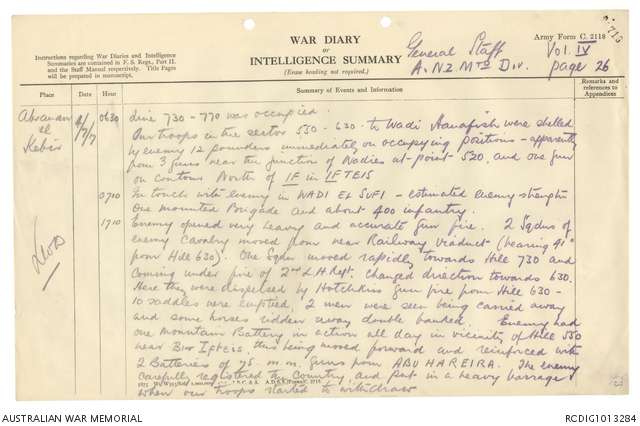 Army Form C. 2118
WAR DIARY
or
INTELLIGENCE SUMMARY
(Erase heading not required.)
Instructions regarding War Diaries and Intelligence
Summaries are contained in F. S. Regs., Part II.
and the Staff Manual respectively. Title Pages
will be prepared in manuscript.
General Staff
A. NZ Mtd Div.
Vol. IV
page 26
Place
Date
Hour
Summary of Events and Information
Remarks and
references to
Appendices
el
Kebir
0630
Line 730 - 770 was occupied.
Our troops in the sector 550 - 630 - to Wadi Hanafish were shelled
by enemy 12 pounders immediately on occupying positions - apparently
from 3 guns near the junction of Wadies at point 520, and one gun
on contour North of IF in IFTEIS
0710
In touch with enemy in WADI EL SUFI - estimated enemy strength
One mounted Brigade and about 400 infantry.
1710
Enemy opened very heavy and accurate gun fire. 2 Sqdns of
enemy Cavalry moved from near Railway Viaduct (bearing 41°
from Hill 630). One Sqdn moved rapidly towards Hill 730 and
coming under fire of 2nd L H Regt. changed direction towards 630.
Here they were dispersed by Hotchkiss Gun fire from Hill 630 -
10 saddles were emptied, 2 men were seen being carried away
and some horses ridden away double banked. Enemy had
one Mountain Battery in action all day in vicinity of Hill 550
near Bir Ifteis, this being moved forward and reinforced with
2 Batteries of 75 m.m guns from ABU HAREIRA. The enemy
carefully registered the Country and put in a heavy barrage
when our troops started to withdraw
AUSTRALIAN WAR MEMORIAL
RCDIG1013284